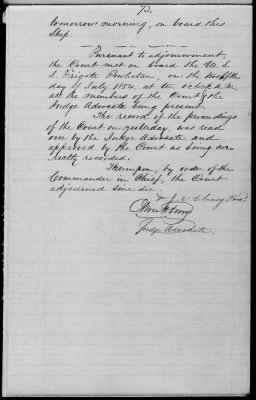 73.
tomorrow morning, on board this
Ship.
Pursuant to adjournment,
the Court met on board the U. S.
S. Frigate Powhatan, on the twelfth
day of July 1854, at ten o'clock A.M,
all the members of the Court & the
Judge Advocate being present.
The record of the proceedings
of the Court on yesterday, was read
over by the Judge Advocate, and
approved by the Court as being cor-
rectly recorded.
Thereupon, by order of the
Commander in Chief, the Court
adjourned sine die.
Wm J. McCluney Prest
Judge Advocate